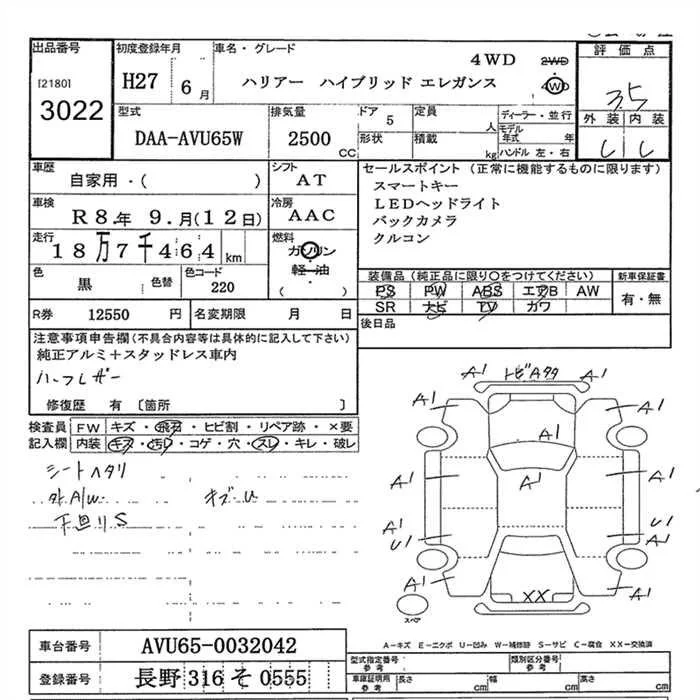 出品番号 初度登録年月 車名・グレード 4WD 2WD 評価点
[2180] 3022 H27 6月 ハリアー ハイブリッド エレガンス 4WD 3.5
型式 排気量 ドア 5 定員 人 ディーラー・並行 外装 内装
DAA-AVU65W 2500 CC 形状 積載 kg モデル年式 年 ハンドル 左・右
車歴 自家用・( ) シフト AT セールスポイント(正常に機能するものに限ります)
スマートキー
車検 R8.年 9.月(12日) 冷房 AAC LEDヘッドライト
バックカメラ
走行 18万7千464 km 燃料 ガソリン クルコン
軽・油
( )
色 黒 色替 色コード 220 装備品(純正品に限り○をつけてください) 新車保証書
PS PW ABS エアB AW 有・無
SR ナビ TV カワ
R券 12550 円 名変期限 月 日 後日品
注意事項申告欄(不具合内容等は具体的に記入して下さい)
純正アルミ+スタッドレス車内
ハーフレザー
修復歴 有 〔箇所 〕
検査員 FW キズ・飛石・ヒビ割・リペア跡・×要
記入欄 内装 キズ・汚れ・コゲ・穴・スレ・キレ・破レ
シートヘタリ
外A/W. キズ・U
下回りS
A1 トビAタタ A1
A1 A1
A1
A1 A1 A1
A1 U1
U1 A1
A1 A1
XX
スペア
A-キズ E-エクボ U-凹み W-補修跡 S-サビ C-腐食 XX-交換済
車台番号 AVU65-0032042
型式指定番号 参考 類別区分番号 参考
登録番号 長野 316 そ 0555
車庫証明用 参考 長さ cm 幅 cm 高さ cm